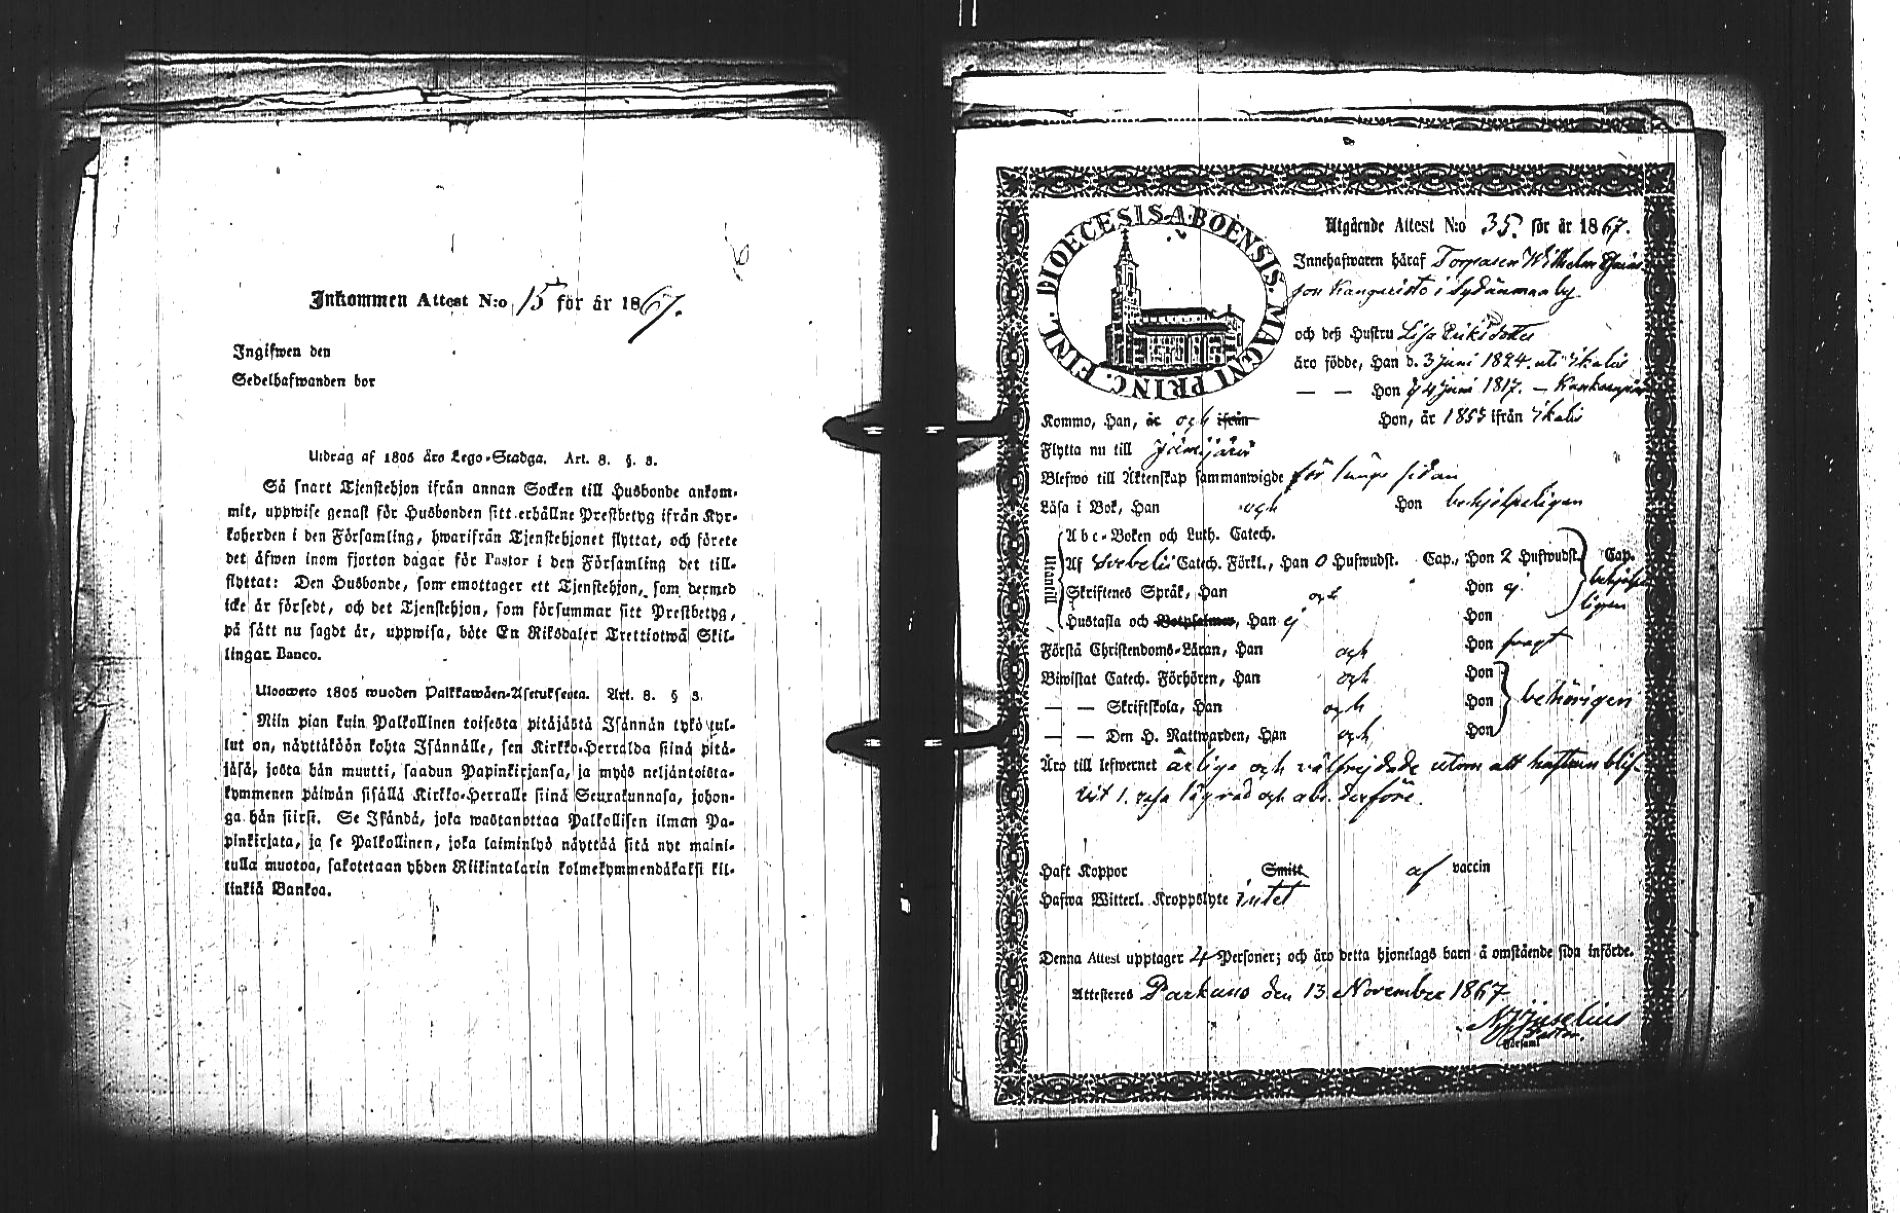 Inkommen Attest N:o 15 för år 1867.
Ingifwen den
Sedelhafwanden bor
Utdrag af 1805 års Lego-Stadga. Art. 8. §. 3.
Så snart Tjenstehjon ifrån annan Socken till Husbonde ankom-
mit, uppwise genast för Husbonden sitt erhållne Prestbetyg ifrån Kyr-
koherden i den Församling, hwarifrån Tjenstehjonet flyttat, och förete
det äfwen inom fjorton dagar för Pastor i den Församling det till-
flyttat: Den Husbonde, som emottager ett Tjenstehjon, som dermed
icke är försedt, och det Tjenstehjon, som försummar sitt Prestbetyg,
på sätt nu sagdt är, uppwisa, böte En Riksdaler Trettiotwå Skil-
lingar Banco.
Ulosweto 1805 wuoden Palkkawäen-Asetuksesta. Art. 8. § 3.
Niin pian kuin Palkollinen toisesta pitäjästä Isännän tykö tul-
lut on, näyttäköön kohta Isännälle, sen Kirkko-Herralda siinä pitä-
jäsä, josta hän muutti, saadun Papinkirjansa, ja myös neljäntoista-
kymmenen päiwän sisällä Kirkko-Herralle siinä Seurakunnasa, johon-
ga hän siirsi. Se Isändä, joka wastanottaa Palkollisen ilman Pa-
pinkirjata, ja se Palkollinen, joka laiminlyö näyttää sitä nyt maini-
tulla muotoa, sakotetaan yhden Riikintalarin kolmekymmendäkaksi kil-
linkiä Bankoa.
FINL. DIOECESIS ABOENSIS. MAGNI PRINC.
Utgående Attest N:o 35. för år 1867.
Innehafwaren häraf Torparen Wilhelm
son Kangaristo i Sydänmaaby
och deß Hustru Lisa Eriksdotter
äro födde, Han d. 3 Juni 1824. uti Ikalis
— — Hon d 4 Juni 1817. —
Kommo, Han, år och ifrån Hon, år 1855 ifrån Ikalis
Flytta nu till Jämijärvi
Blefwo till Äktenskap sammanwigde för länge sedan
Läsa i Bok, Han och Hon behjelpeligen
Utantill
Abc-Boken och Luth. Catech.
Af Svebelii Catech. Förkl., Han 0 Hufwudst. Cap., Hon 2 Hufwudst. Cap.
behjelpe-
ligen
Skriftenes Språk, Han och Hon ej
Hustafla och Botpsalmer, Han ej Hon
Förstå Christendoms-Läran, Han och Hon swagt
Biwistat Catech. Förhören, Han och Hon
— — Skriftskola, Han och Hon behörigen
— — Den H. Nattwarden, Han och Hon
Äro till lefwernet ärlige och välfrejdade utom att hustrun blif-
vit 1. resa lägrad och abs. derföre.
Haft Koppor Smitt af vaccin
Hafwa Witterl. Kroppslyte intet
Denna Attest upptager 4 Personer; och äro detta hjonelags barn å omstående sida införde.
Attesteres Parkano den 13 November 1867
Pastor.
Församl